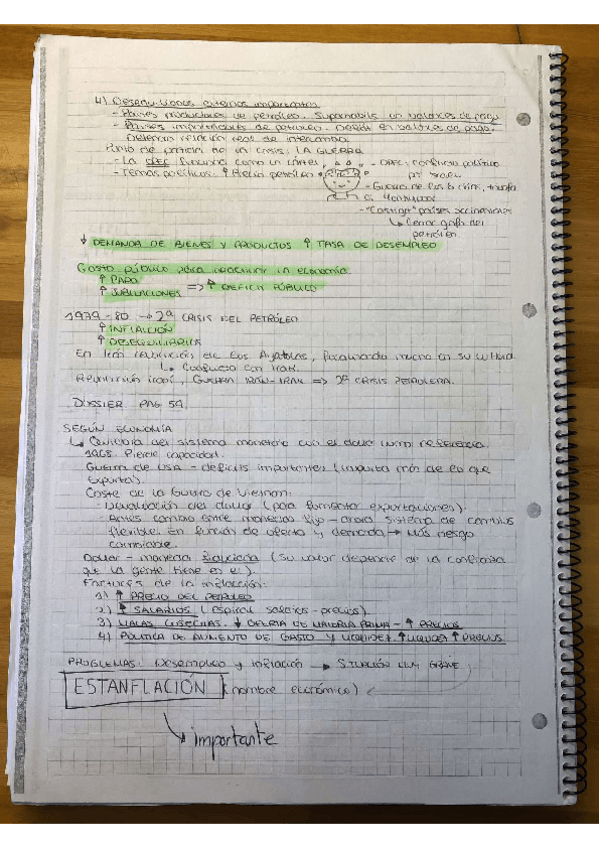 4) Desequilibrios externos importantes
- Países productores de petróleo. Superhabits en balances de pago
- Países importadores de petróleo. Deficit en balances de pago.
Deterioro relación real de intercambio.
Punto de partida de la crisis: LA GUERRA
- La OPEC funciona como un cártel
- Temas políticos: ↑ Precio petróleo
- OPEC: conflicto político
- Guerra de los 6 días, triunfo
- "Castigo" países occidentales
↳ Cerrar grifo del petróleo
↓ DEMANDA DE BIENES Y PRODUCTOS ↑ TASA DE DESEMPLEO
Gasto público para reactivar la economía
↑ PARO
↑ JUBILACIONES => ↑ DEFICIT PÚBLICO
1979-80 → 2ª CRISIS DEL PETRÓLEO
↑ INFLACIÓN
↑ DESEQUILIBRIOS
En Irán revolución de los Ayatolas,
↳ Conflicto con Irak.
GUERRA IRÁN-IRAK => 2ª CRISIS PETROLERA.
DOSSIER PAG 54
SEGÚN ECONOMÍA
↳ Quiebra del sistema monetario con el dolar como referencia.
1968. Pierde capacidad.
Guerra de USA - deficits importantes (importa más de lo que
exporta).
Coste de la Guerra de Vietnam:
- Devaluación del dolar (para fomentar exportaciones).
- Antes cambio entre monedas fijo - ahora sistema de cambios
flexible. En función de oferta y demanda → Más riesgo
cambiable.
Dolar - moneda fiduciaria (su valor depende de la confianza
que la gente tiene en él).
Factores de la inflación:
1) ↑ PRECIO DEL PETROLEO
2) ↑ SALARIOS (Espiral salarios-precios).
3) MALAS COSECHAS. ↓ OFERTA DE MATERIA PRIMA - ↑ PRECIOS
4) POLITICA DE AUMENTO DE GASTO Y LIQUIDEZ. ↑ LIQUIDEZ ↑ PRECIOS
PROBLEMAS: Desempleo y inflación → SITUACIÓN MUY GRAVE
ESTANFLACIÓN (nombre económico)
↘ importante